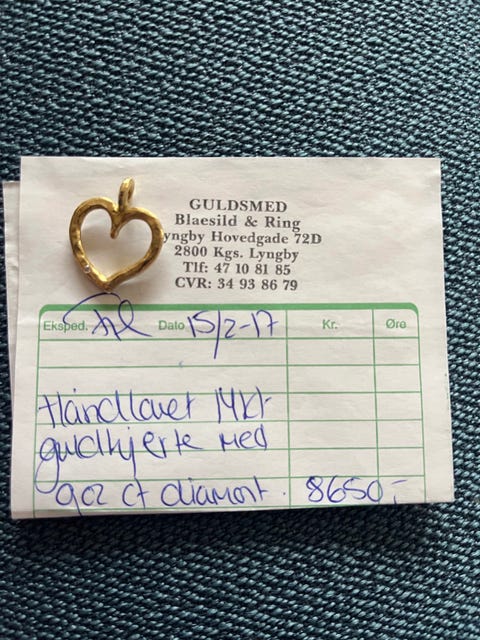 GULDSMED
Blaesild & Ring
yngby Hovedgade 72D
2800 Kgs. Lyngby
Tlf: 47 10 81 85
CVR: 34 93 86 79
Eksped. Dato 15/2-17 Kr. Øre
Håndlavet 14kt
guldhjerte med
0,02 ct diamant. 8650,-